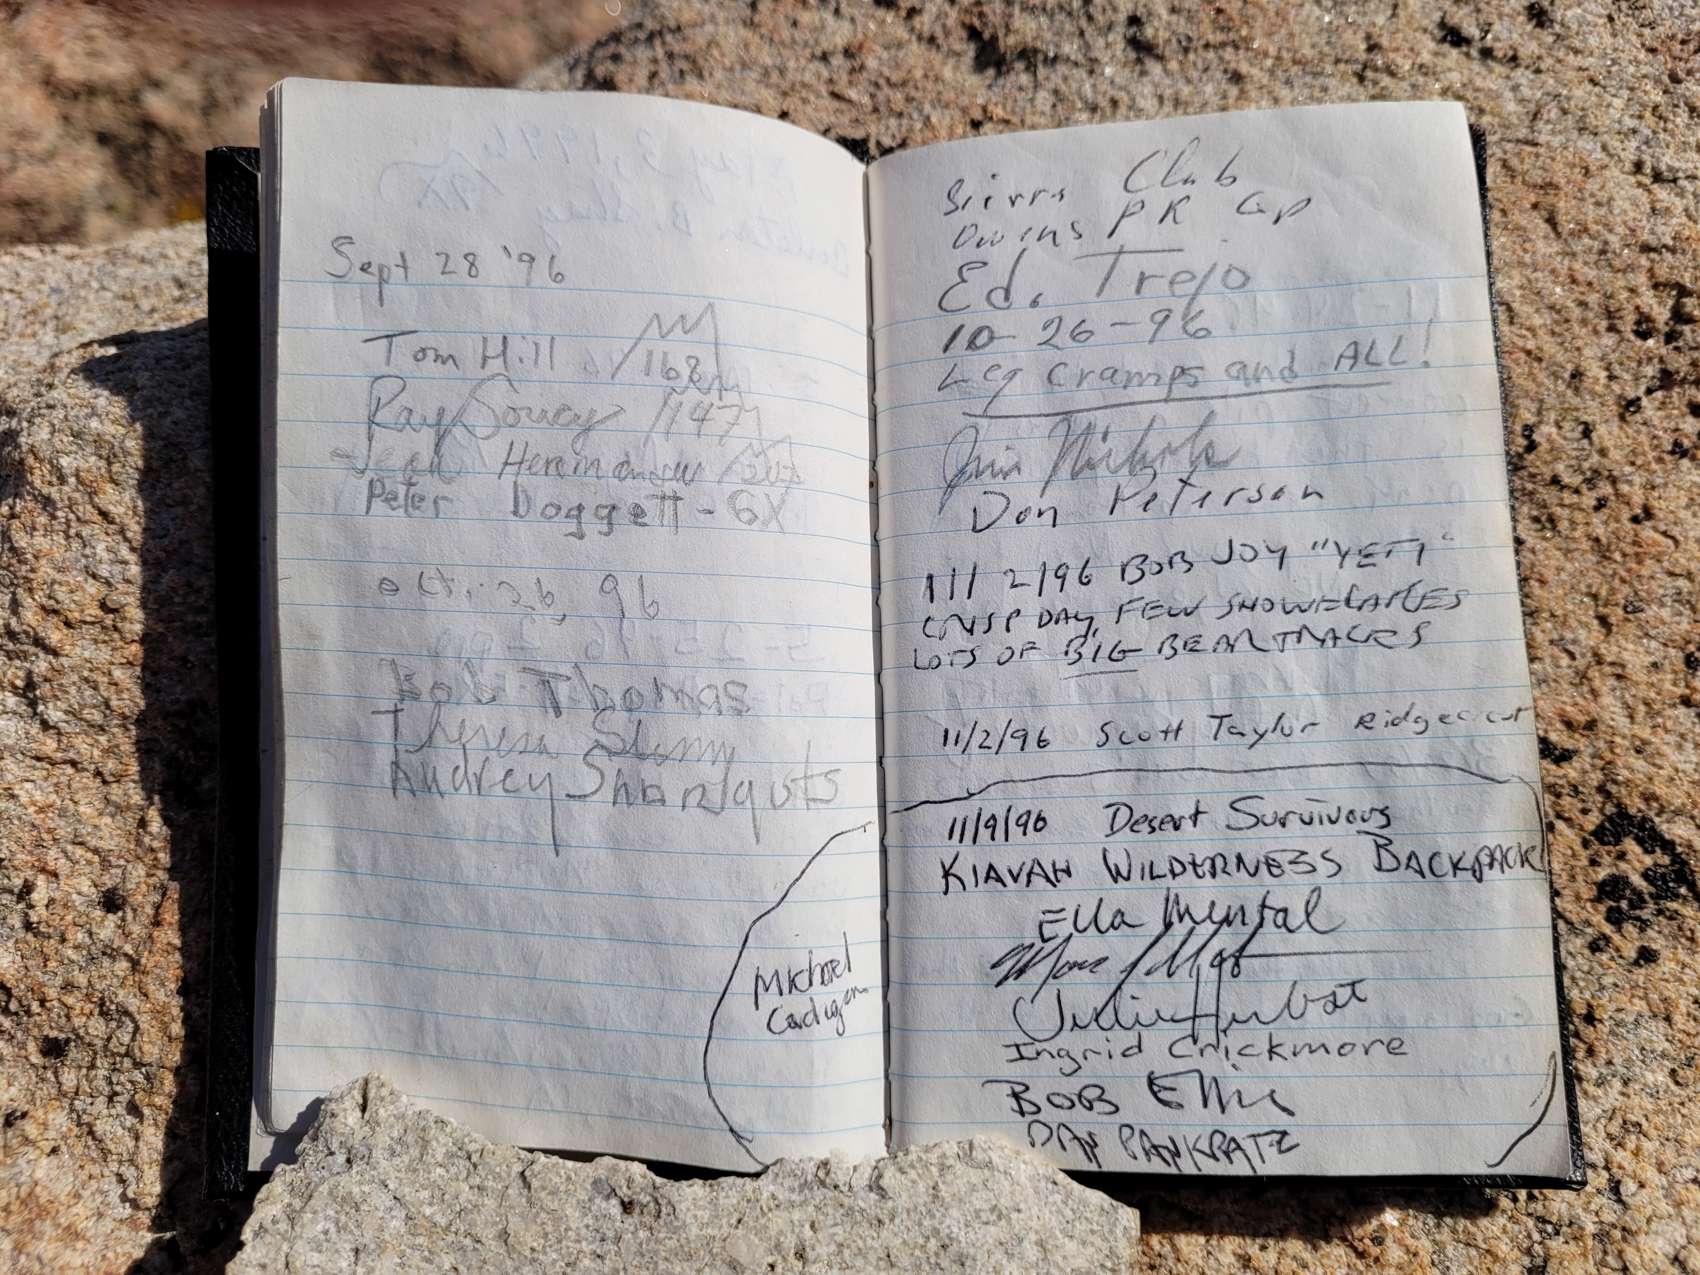 Sept 28 '96
Tom Hill /168
Ray Soucy /147
Hernandez
Peter Doggett - 6X
Oct. 26, 96
Bob Thomas
Theresa
Audrey
Michael
Cadigan
Sierra Club
Owens PK Gp
Ed. Trejo
10-26-96
Leg Cramps and ALL!
Jim Nichols
Don Peterson
11/2/96 BOB JOY "YETI"
CRISP DAY, FEW SNOWFLAKES
LOTS OF BIG BEAR TRACKS
11/2/96 Scott Taylor Ridgecrest
11/9/96 Desert Survivors
KIAVAH WILDERNESS BACKPACK
Ella Mental
Julie
Ingrid Crickmore
BOB Ellis
DAN PANKRATZ